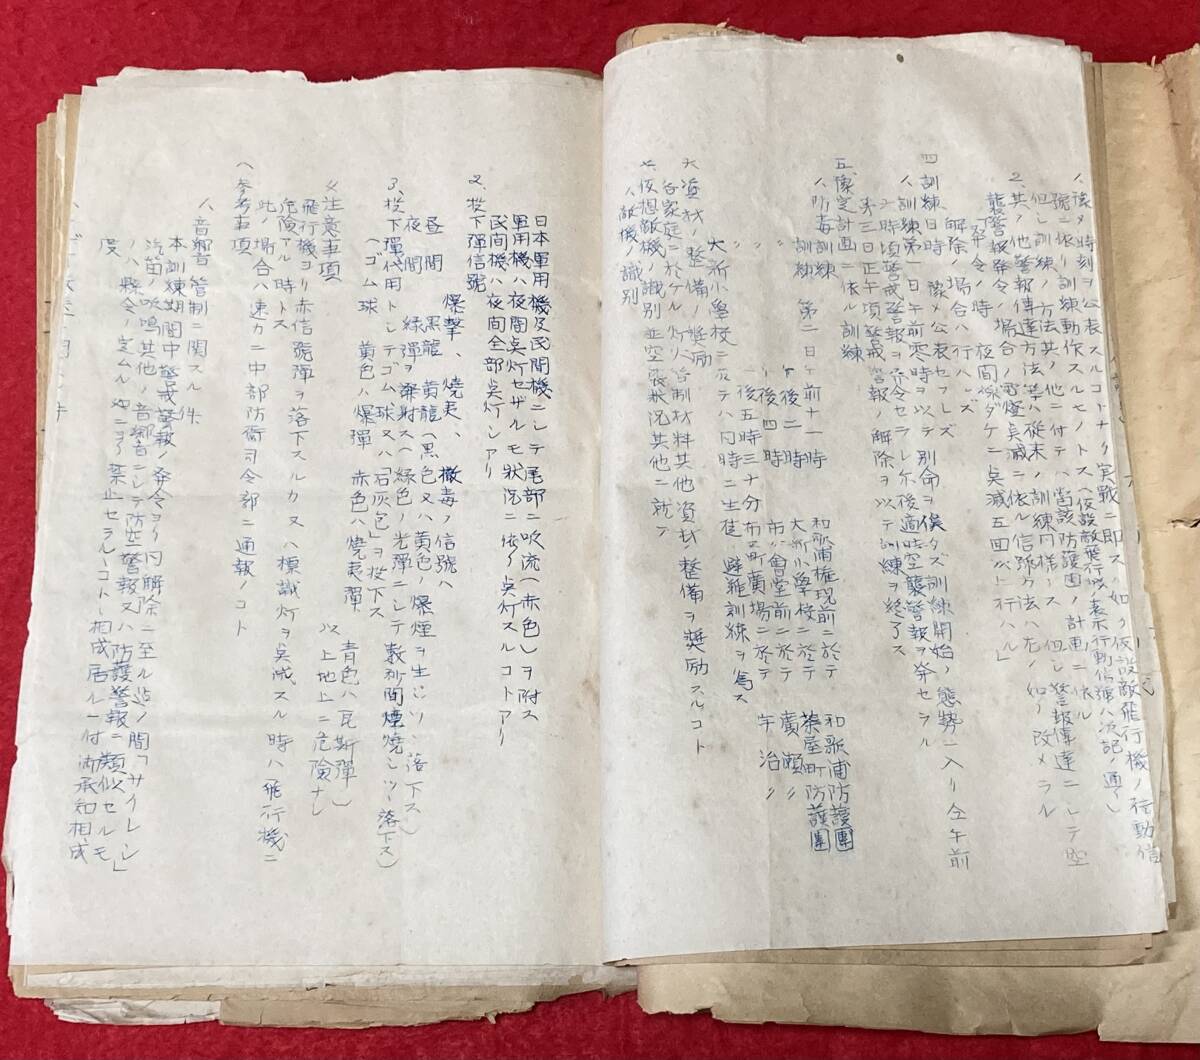 豫メ時刻ヲ公表スルコトナク実戦ニ即スル如ク仮設敵飛行機ノ行動信
號ニ依リ訓練動作スルモノトス(仮設敵飛行機ノ表示行動信號ハ次記ノ通リ)
但シ訓練ノ方法其ノ他ニ付テハ当該防護団ノ計画ニ依ル
2、其ノ他警報傳達方法等ハ従来ノ訓練同様トス 但シ警報傳達ニシテ空
襲警報発令ノ場合ノ電燈点滅ニ依ル信號方法ハ左ノ如ク改メラル
発令ノ時 夜間ダケニ点滅五回以上行ハル
解除ノ場合ハ行ハレズ
四訓練日時 豫メ公表セラレズ
1、訓練第一日午前零時ヲ以テ別命ヲ俟タズ訓練開始ノ態勢ニ入リ仝午前
六時頃警戒警報ヲ発令セラレ尓後適時空襲警報ヲ発セラル
2、第三日正午頃警戒警報ノ解除ヲ以テ訓練ヲ終了ス
五豫定計画ニ依ル訓練
1、防毒訓練 第二日午前十一時 和歌浦権現前ニ於テ 和歌浦防護團
訓練 午後二時 大新小學校ニ於テ 茶屋町防護團
〃 午後四時 市公會堂前ニ於テ 廣瀬〃
〃 午後五時三十分 布工町廣場ニ於テ 宇治〃
大新小學校ニ於テハ同時ニ生徒ノ避難訓練ヲ為ス
六資材ノ整備ノ奨励
各家庭ニ於ケル灯火管制材料其他資材ノ整備ヲ奨励スルコト
七仮想敵機ノ識別並空襲状況其他ニ就テ
1、敵機ノ識別
日本軍用機及民間機ニシテ尾部ニ吹流(赤色)ヲ附ス
軍用機ハ夜間点灯セザルモ状況ニ依リ点灯スルコトアリ
民間機ハ夜間全部点灯シアリ
2、投下彈信號
爆撃、焼夷、撒毒ノ信號ハ
昼間 黒龍、黄龍(黒色又ハ黄色ノ爆煙ヲ生ジツヽ落下ス)
夜間 緑彈ヲ発射ス(緑色ノ光彈ニシテ数秒間燻焼シツヽ落下ス)
3、投下彈代用トシテゴム球又ハ「石灰包」ヲ投下ス
(ゴム球 黄色ハ爆彈 赤色ハ焼夷彈 青色ハ瓦斯彈)
以上地上ニ危険ナシ
4、注意事項
飛行機ヨリ赤信號彈ヲ落下スルカ又ハ標識灯ヲ点滅スル時ハ飛行機ニ
危険アル時トス
此ノ場合ハ速カニ中部防衛司令部ニ通報ノコト
(参考事項
1、音響管制ニ関スル件
本訓練期間中警戒警報ノ発令ヨリ同解除ニ至ル迄ノ間「サイレン」
汽笛ノ吹鳴其他ノ音響ニシテ防空警報又ハ防護警報ニ類似セルモ
ノハ縣令ノ定ムル処ニヨリ禁止セラルヽコトヽ相成居ルニ付御承知相成
度